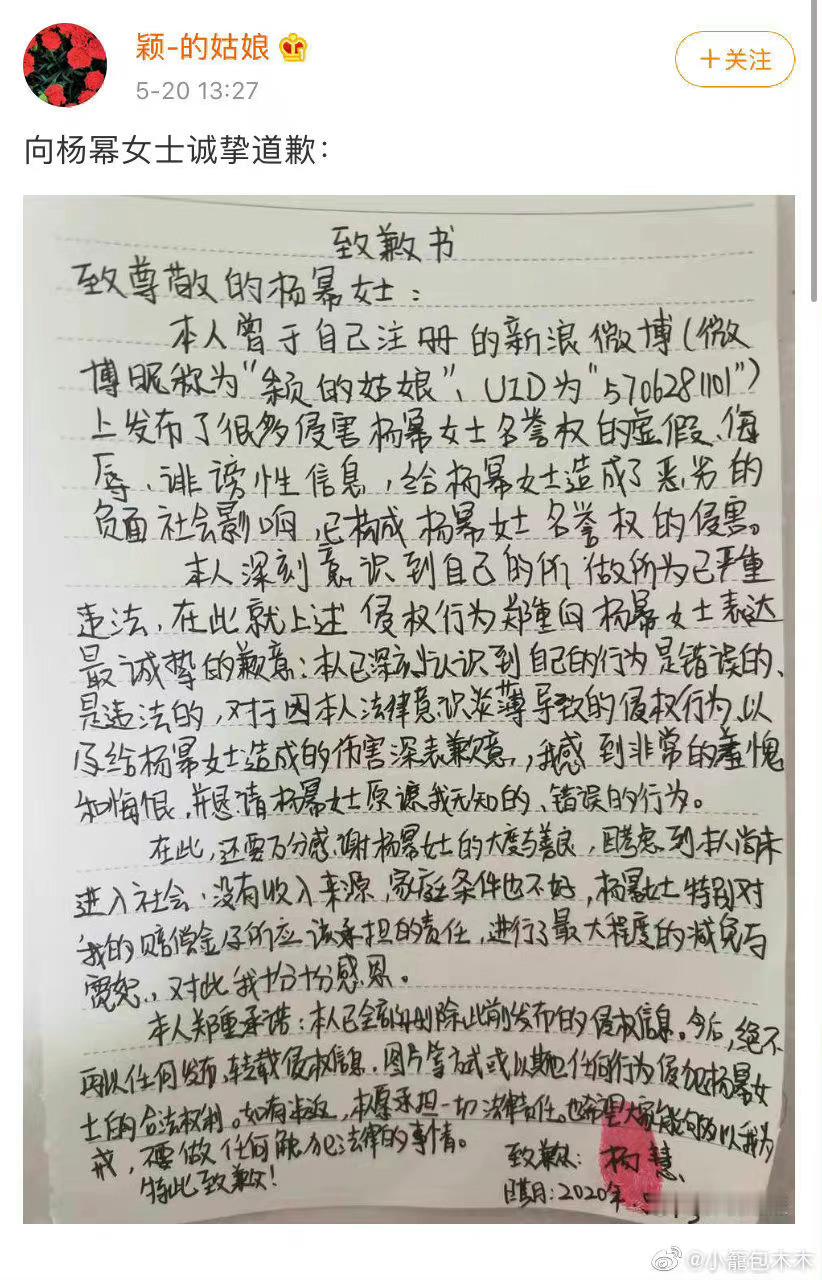 颖-的姑娘
+关注
5-20 13:27
向杨幂女士诚挚道歉：
致歉书
致尊敬的杨幂女士：
本人曾于自己注册的新浪微博（微
博昵称为“颖的姑娘”、UID为“5706281101”）
上发布了很多侵害杨幂女士名誉权的虚假、侮
辱、诽谤性信息，给杨幂女士造成了恶劣的
负面社会影响，已构成杨幂女士名誉权的侵害。
本人深刻意识到自己的所做所为已严重
违法，在此就上述侵权行为郑重向杨幂女士表达
最诚挚的歉意：本人已深刻认识到自己的行为是错误的、
是违法的，对于因本人法律意识淡薄导致的侵权行为、以
及给杨幂女士造成的伤害深表歉意，我感到非常的羞愧
和悔恨，并恳请杨幂女士原谅我无知的、错误的行为。
在此，还要万分感谢杨幂女士的大度与善良，因考虑到本人尚未
进入社会、没有收入来源，家庭条件也不好，杨幂女士特别对
我的赔偿金及所应该承担的责任，进行了最大程度的减免与
宽恕，对此我十分十分感恩。
本人郑重承诺：本人已全部删除此前发布的侵权信息。今后，绝不
再以任何发布、转载侵权信息、图片等方式或以其他任何行为侵犯杨幂女
士的合法权利。如有违返，本愿承担一切法律责任。也希望大家能够以我为
戒，不要做任何触犯法律的事情。
特此致歉！
致歉人：杨慧
日期：2020年
@小籠包木木